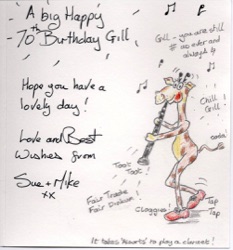 A big Happy
70th Birthday Gill
Gill - you are still
as ever and
always
Hope you have a
lovely day!
Chill
Gill!
Love and Best
Wishes from
Toot
Toot!
Sue + Mike
xx
Fair Trade
Fair
Cloggies
Tap
Tap
It takes 'Hearts' to play a clarinet!